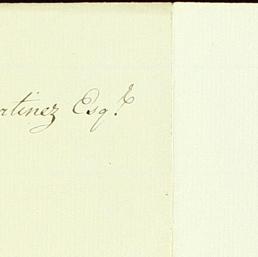 rtinez Esqr.